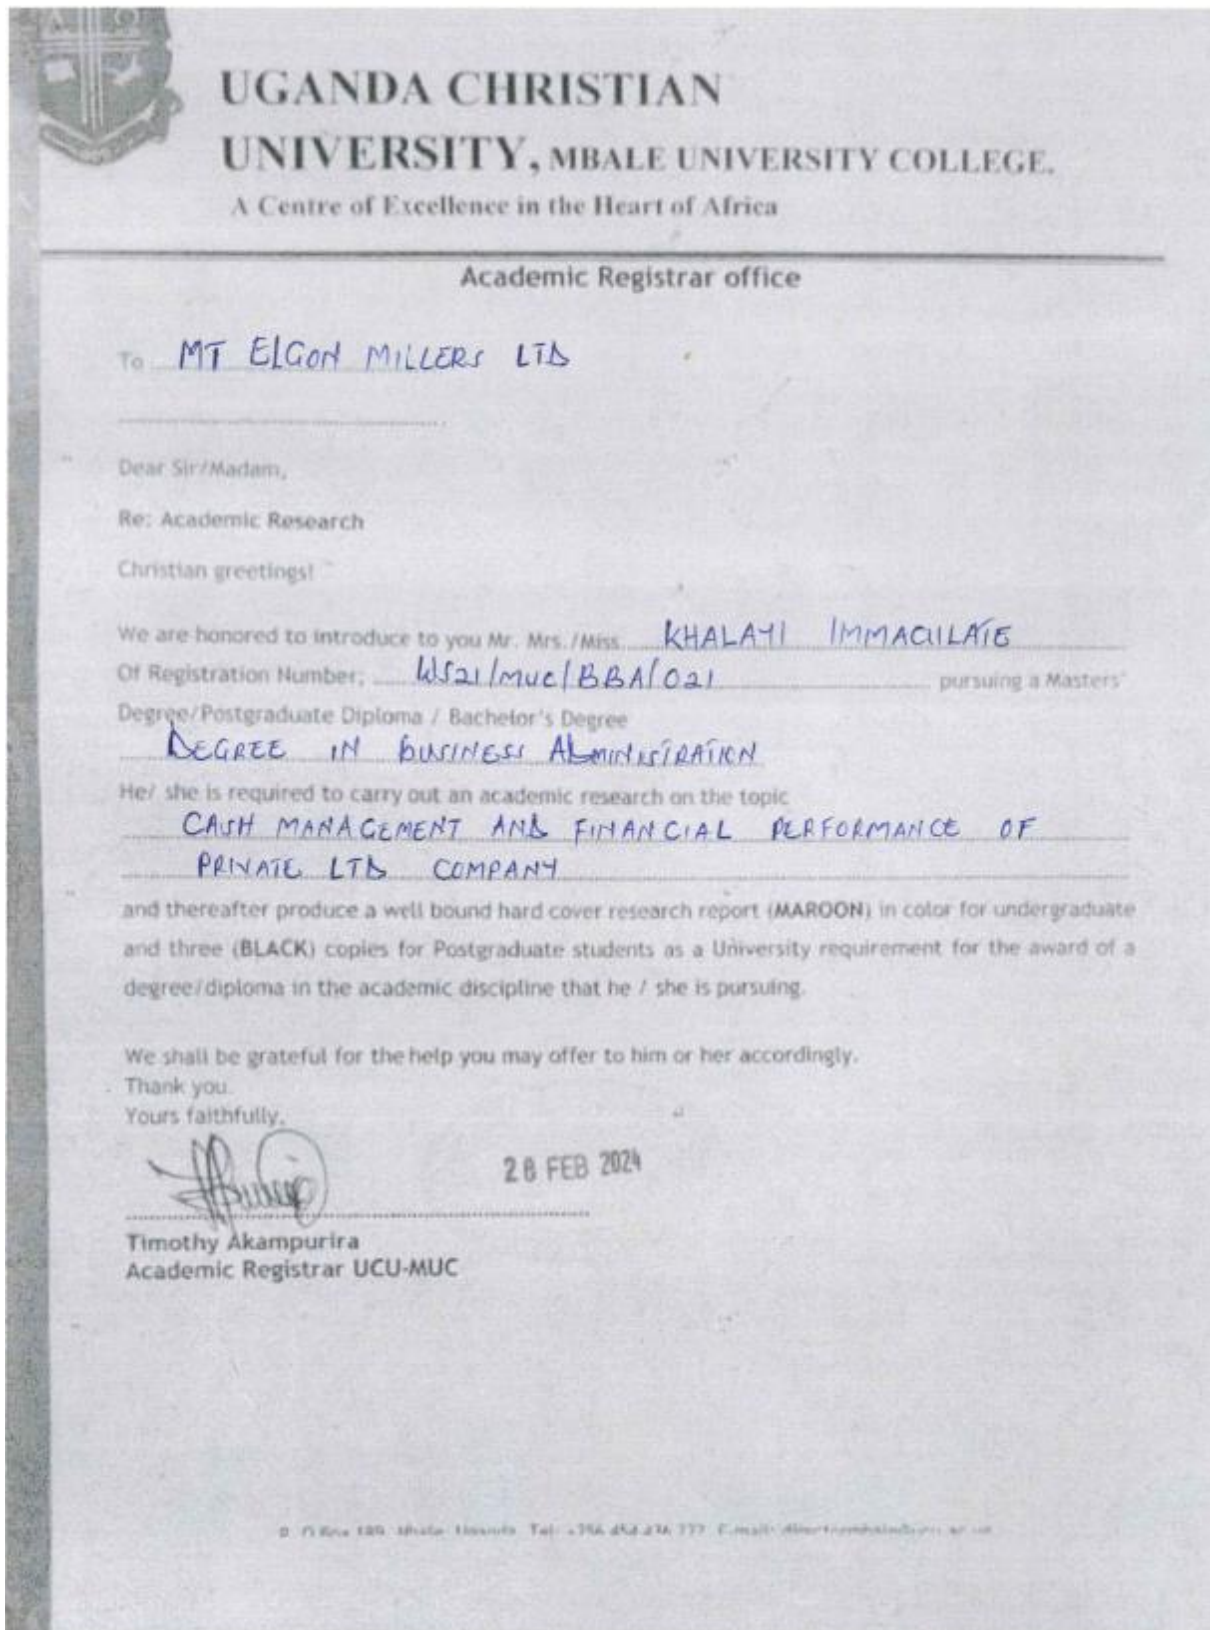 A Ω
UGANDA CHRISTIAN
UNIVERSITY, MBALE UNIVERSITY COLLEGE.
A Centre of Excellence in the Heart of Africa
Academic Registrar office
To MT ELGON MILLERS LTD
Dear Sir/Madam,
Re: Academic Research
Christian greetings!
We are honored to introduce to you Mr. Mrs./Miss. KHALAYI IMMACULATE
Of Registration Number; WS21/MUC/BBA/021 pursuing a Masters'
Degree/Postgraduate Diploma / Bachelor's Degree
DEGREE IN BUSINESS ADMINISTRATION
He/ she is required to carry out an academic research on the topic
CASH MANAGEMENT AND FINANCIAL PERFORMANCE OF
PRIVATE LTD COMPANY
and thereafter produce a well bound hard cover research report (MAROON) in color for undergraduate
and three (BLACK) copies for Postgraduate students as a University requirement for the award of a
degree/diploma in the academic discipline that he / she is pursuing.
We shall be grateful for the help you may offer to him or her accordingly.
Thank you.
Yours faithfully,
28 FEB 2024
Timothy Akampurira
Academic Registrar UCU-MUC
Tel: